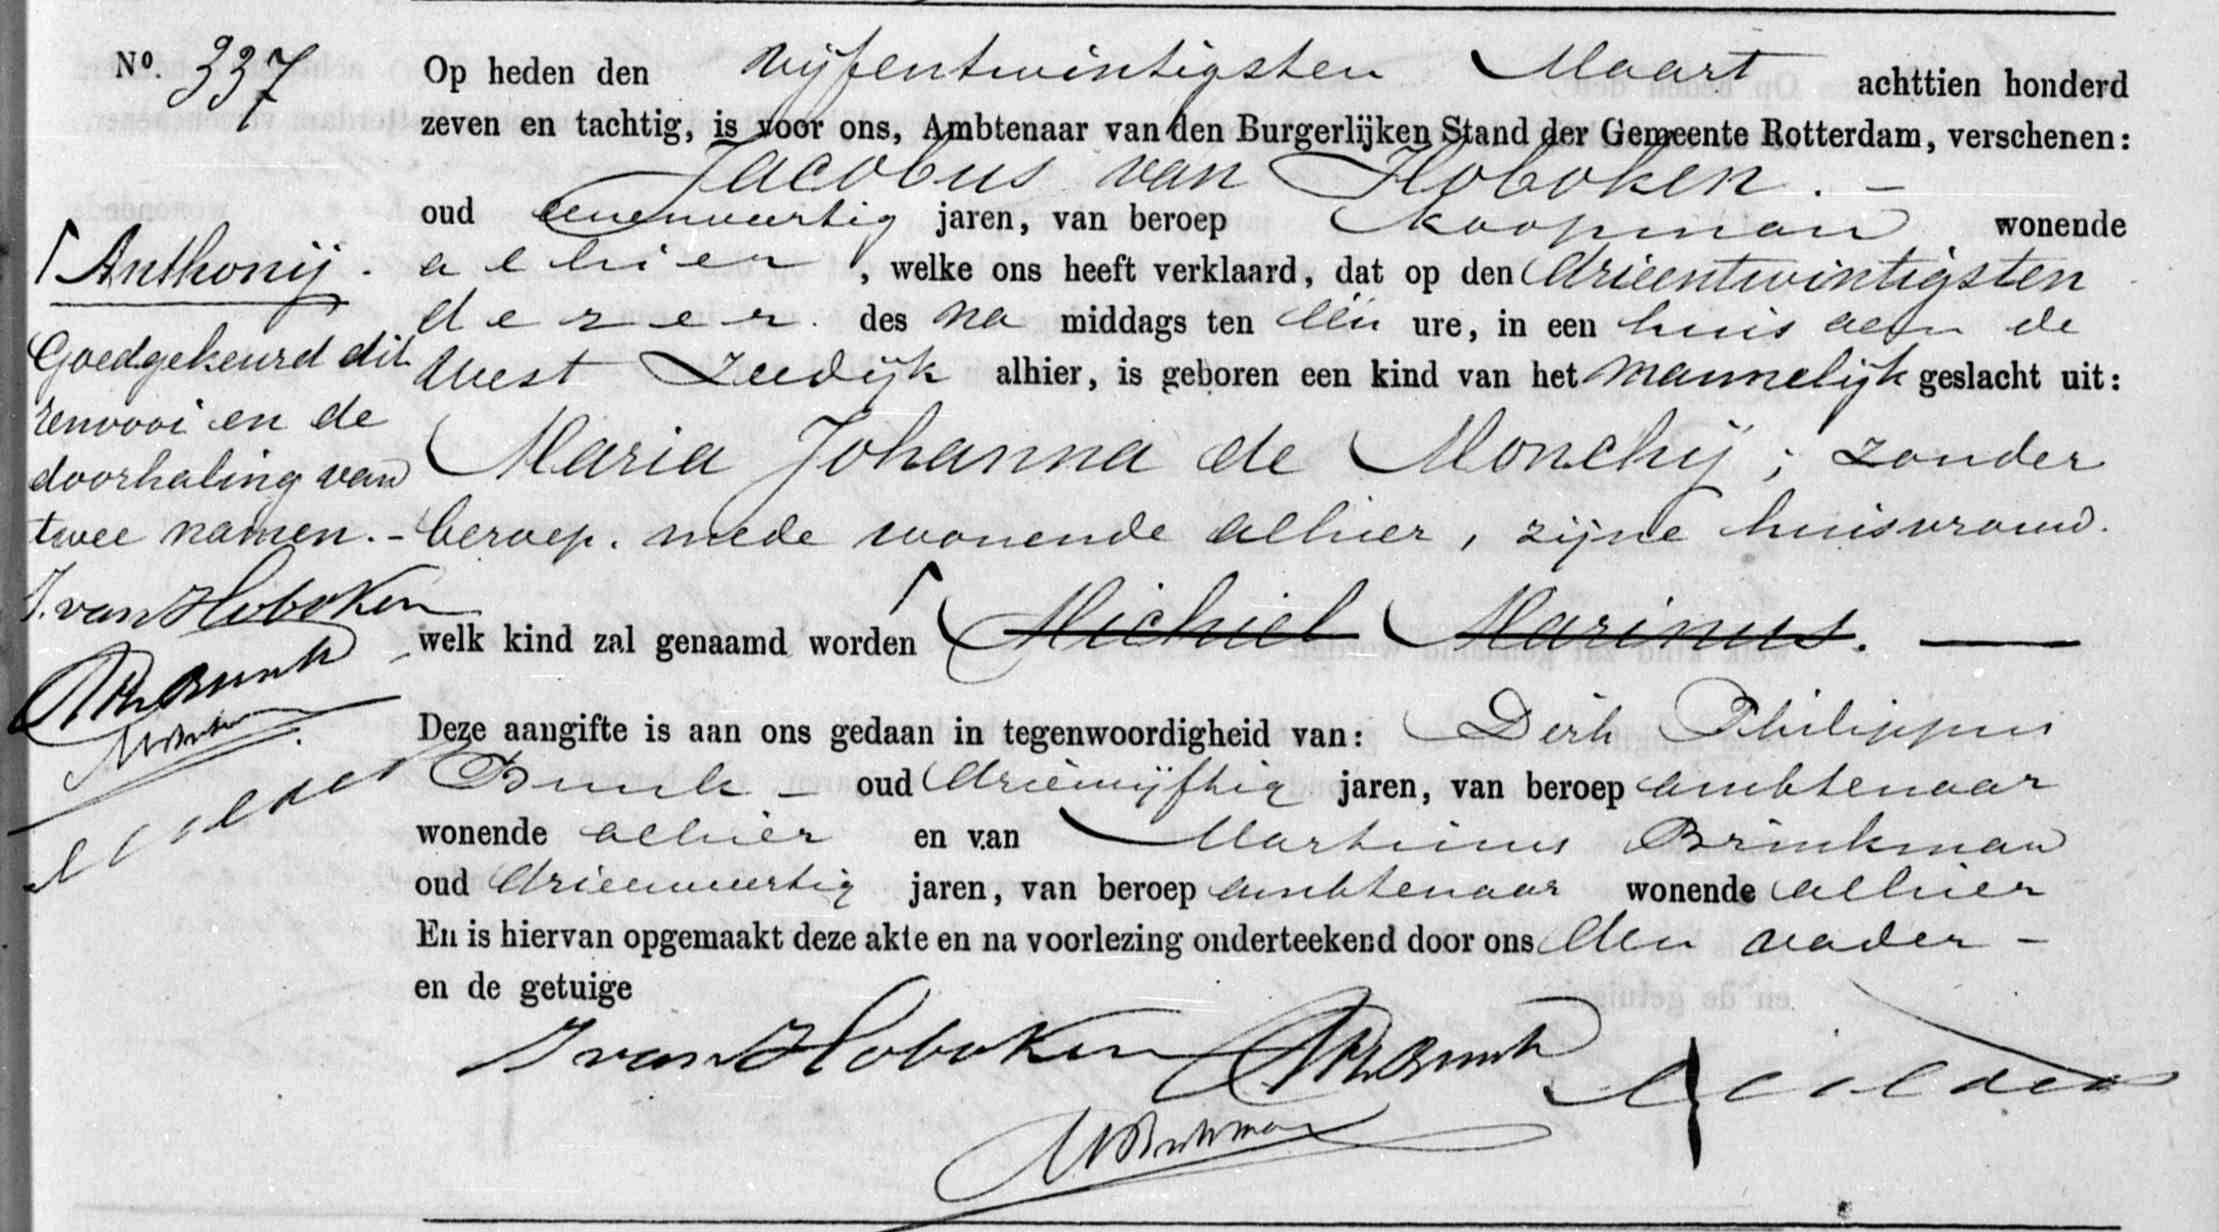 Nº. 337
Op heden den vijfentwintigsten Maart achttien honderd
zeven en tachtig, is voor ons, Ambtenaar van den Burgerlijken Stand der Gemeente Rotterdam, verschenen:
Jacobus van Hoboken. –
oud eenenveertig jaren, van beroep koopman wonende
alhier, welke ons heeft verklaard, dat op den drieentwintigsten
dezer. des na middags ten één ure, in een huis aan de
West Zeedijk alhier, is geboren een kind van het mannelijk geslacht uit:
Maria Johanna de Monchij; zonder
beroep. mede wonende alhier, zijne huisvrouw.
welk kind zal genaamd worden ┌ Michiel Marinus. —
Deze aangifte is aan ons gedaan in tegenwoordigheid van: Dirk Philippus
Bunk – oud drieenvijftig jaren, van beroep ambtenaar
wonende alhier en van Martinus Brinkman
oud drieenveertig jaren, van beroep ambtenaar wonende alhier
En is hiervan opgemaakt deze akte en na voorlezing onderteekend door ons den vader –
en de getuige
J van Hoboken DPh Bunk
M Brinkman
┌ Anthonij.
Goedgekeurd dit
renvooi en de
doorhaling van
twee namen. –
J. van Hoboken
DPh Bunk
M Brinkman